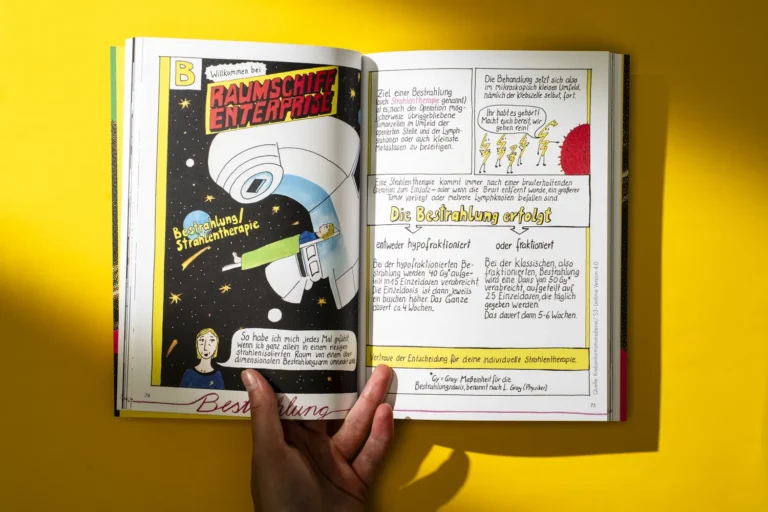 B
Willkommen bei
RAUMSCHIFF
ENTERPRISE
Bestrahlung/
Strahlentherapie
So habe ich mich jedes Mal gefühlt,
Wenn ich ganz allein in einem riesigen
strahlenisolierten Raum von einem über
dimensionalen Bestrahlungsarm umrundet
74
Bestrahlung
Ziel einer Bestrahlung
(auch Strahlentherapie genannt)
ist es, nach der Operation mög-
licherweise übriggebliebene
Tumorzellen im Umfeld der
operierten Stelle und der Lymph-
bahnen oder auch kleinste
Metastasen zu beseitigen.
Die Behandlung setzt sich also
im mikroskopisch kleinen Umfeld,
nämlich der Krebszelle selbst, fort.
Ihr habt es gehört!
Macht euch bereit, wir
gehen rein!
Eine Strahlentherapie kommt immer nach einer brusterhaltenden
Operation zum Einsatz – oder wenn die Brust entfernt wurde, ein größerer
Tumor vorliegt oder mehrere Lymphknoten befallen sind.
Die Bestrahlung erfolgt
entweder hypofraktioniert
oder fraktioniert
Bei der hypofraktionierten Be-
strahlung werden 40 Gy* aufge-
teilt in 15 Einzeldosen verabreicht.
Die Einzeldosis ist dann jeweils
ein bisschen höher. Das Ganze
dauert ca. 4 Wochen.
Bei der Klassischen, also
fraktionierten, Bestrahlung
wird eine Dosis von 50 Gy*
verabreicht, aufgeteilt auf
25 Einzeldosen, die täglich
gegeben werden.
Das dauert dann 5-6 Wochen.
Vertraue der Entscheidung für deine individuelle Strahlentherapie.
*Gy = Gray: Maßeinheit für die
Bestrahlungsdosis, benannt nach L. Gray (Physiker)
75